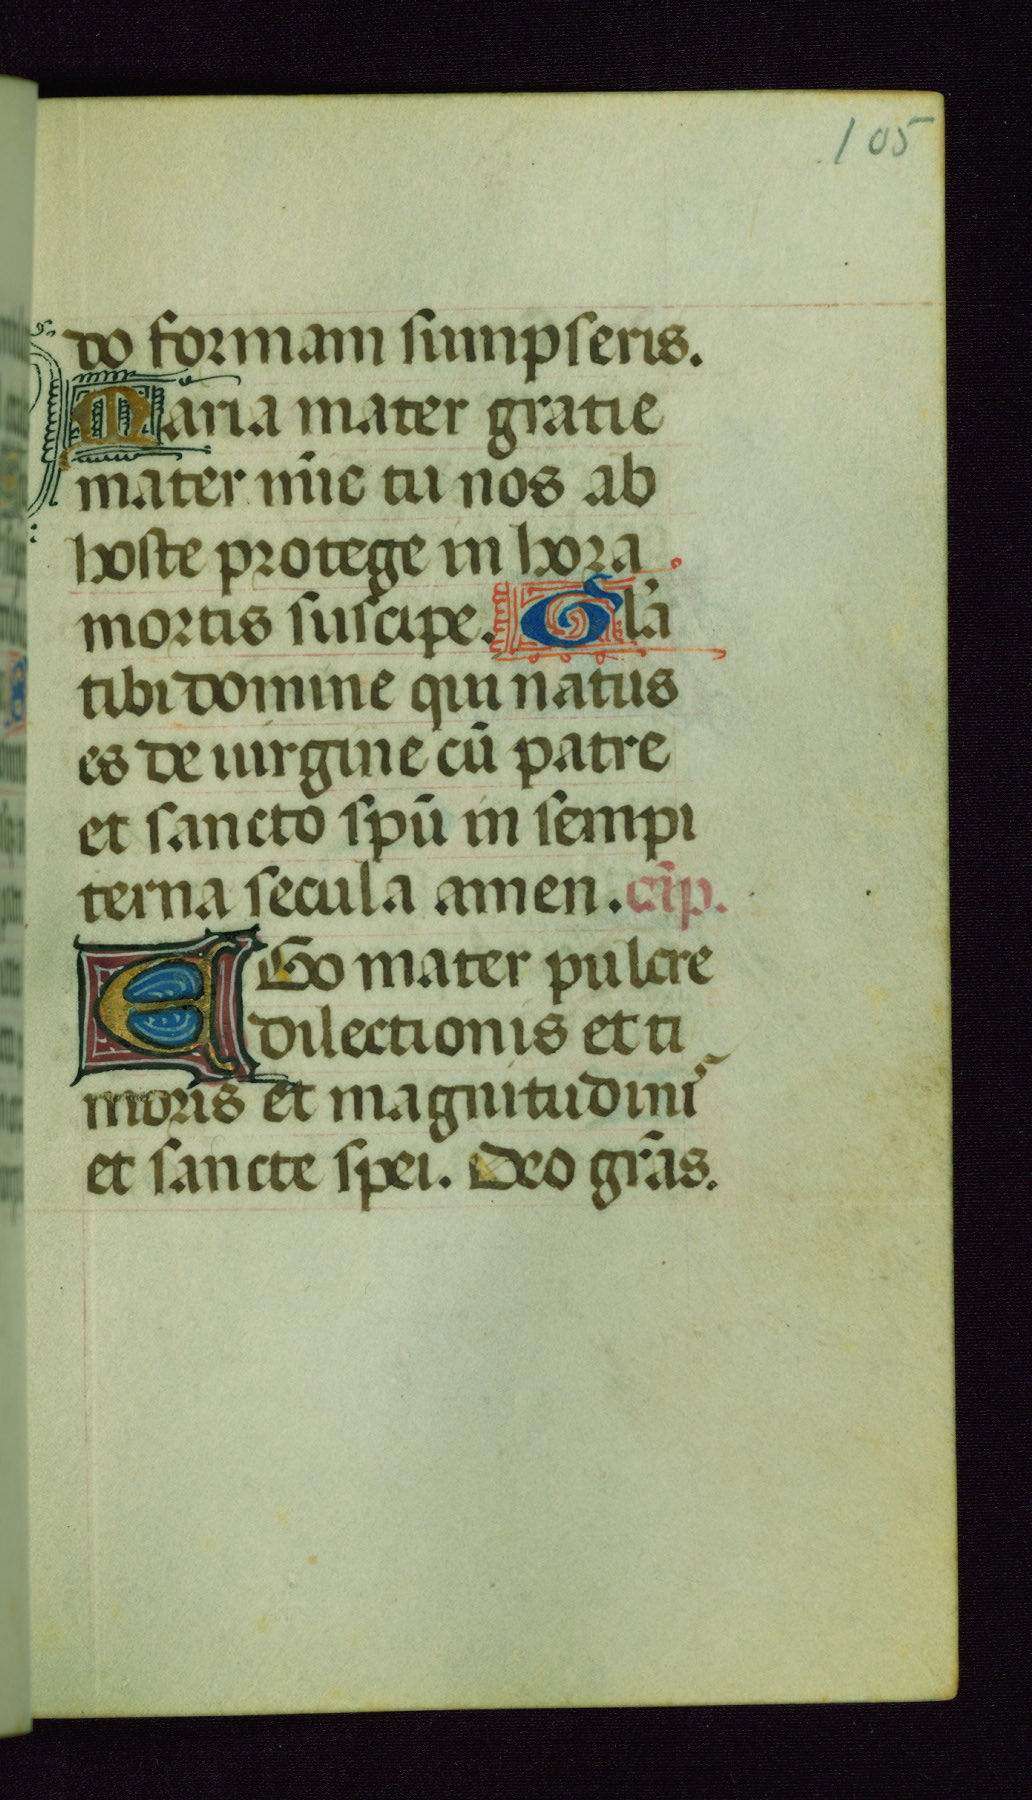 105
do formam sumpseris.
Maria mater gratie
mater mīe tu nos ab
hoste protege in hora
mortis suscipe. Gl̄a
tibi domine qui natus
es de uirgine cū patre
et sancto spū in sempi
terna secula amen. cāp.
EGo mater pulcre
dilectionis et ti
moris et magnitudinis
et sancte spei. Deo grās.